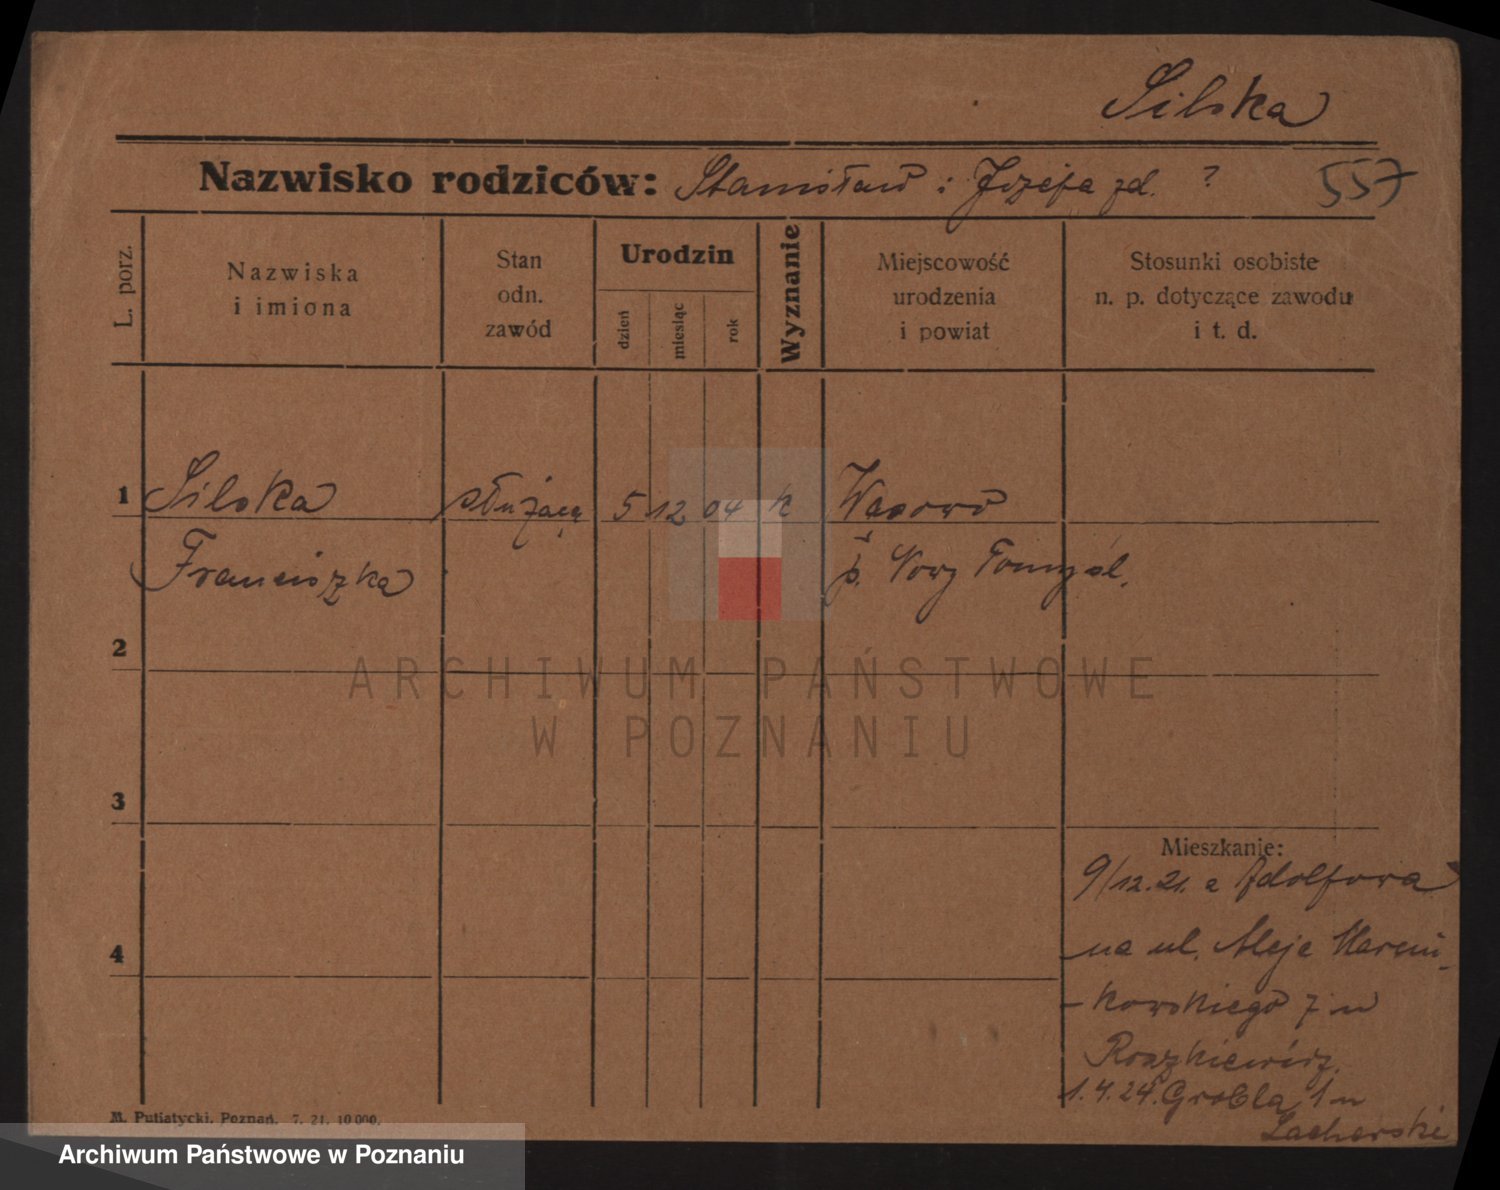 Silska
Nazwisko rodziców: Stanisław i Józefa zd. ?
557
L. porz.
Nazwiska
i imiona
Stan
odn.
zawód
Urodzin
dzień
miesiąc
rok
Wyznanie
Miejscowość
urodzenia
i powiat
Stosunki osobiste
n. p. dotyczące zawodu
i t. d.
1 Silska służąca 5 12 04 k Wąsowo
Franciszka p. Nowy Tomyśl.
2
3
4
Mieszkanie:
9/12.21. z Adolfowa
na ul. Aleje Marcin-
-kowskiego 7 u
Roszkiewicz.
1.4.24. Grobla 1 u
M. Putiatycki, Poznań. 7. 21. 10 000.
ARCHIWUM PAŃSTWOWE
W POZNANIU
Archiwum Państwowe w Poznaniu